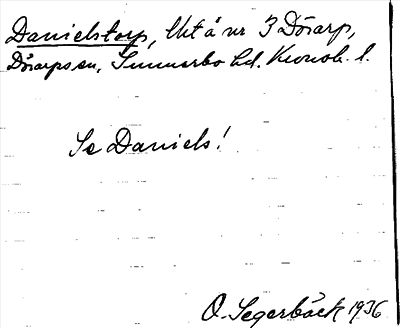 Danielstorp, Utå nr 3 Dörarp,
Dörarps sn, Sunnerbo hd. Kronob. l.
Se Daniels!
O. Segerbäck 1936